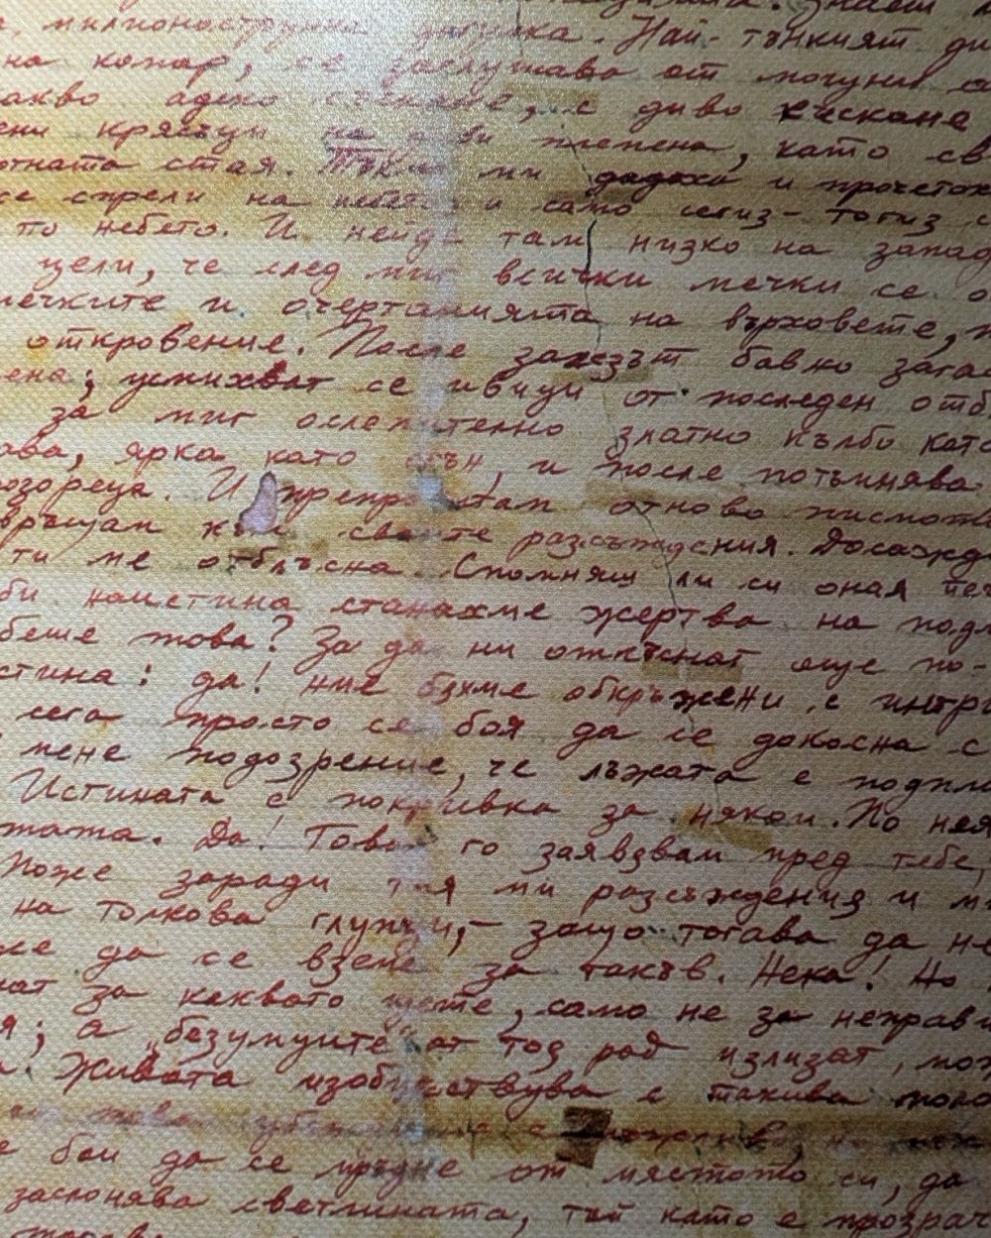 милионоструйна цигулка. Най-тънкият ди
на комар, се заслушава от могъщи
акво адско съскане, с диво кискане
ени крясъци на диви племена, като св
отната стая. Тъкмо ми дадоха и прочетох
се спрели на небето и само сегиз-тогиз
по небето. И нейде там низко на запад
цели, че след миг всички мечки се о
мечките и очертанията на върховете,
откровение. После залезът бавно загас
ена; усмихват се ивици от последен отб
за миг ослепително златно кълбо като
ава, ярка като сън, и после потъмнява
розореца. И препрочитам отново писмото
връщам към своите разсъждения. Досажд
ти ме отблъсна. Спомняш ли си оная
би наистина станахме жертва на подл
беше това? За да ни откъснат още по-
стина: да! ние бяхме обкръжени с интри
сега просто се боя да се докосна с
мене подозрение, че лъжата е
Истината е покривка за някои. Но
тата. Да! Това го заявявам пред тебе,
Може заради тия ми разсъждения и
на толкова глупци, – защо тогава да не
же да се вземе за такъв. Нека! Но
нат за каквато щете, само не за неправи
я; а безумците от тоя род излизат,
Живота изобилствува с такива
е бои да се мръдне от мястото си, да
заслонява светлината, тъй като е прозрач